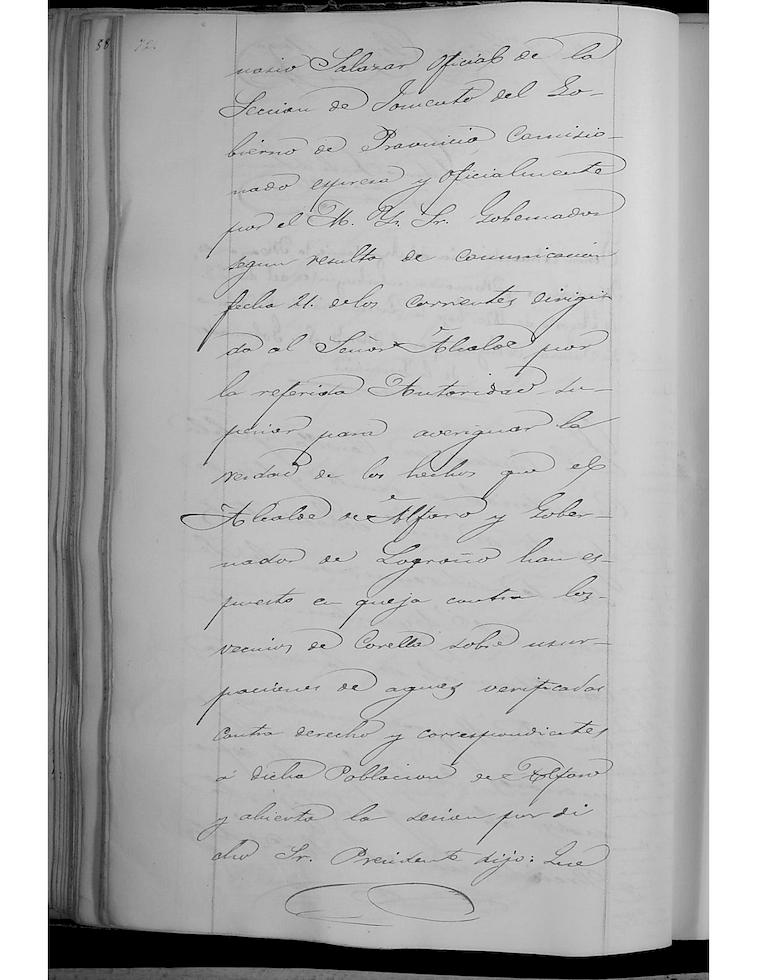 nasio Salazar Oficial de la
Seccion de Fomento del Go-
bierno de Provincia Comisio-
nado espresa y oficialmente
por el M. Y. Sr. Gobernador
segun resulta de comunicacion
fecha 21. de los corrientes dirigi
da al Señor Alcalde por
la referida Autoridad Su-
perior para averiguar la
verdad de los hechos que el
Alcalde de Alfaro y Gober-
nador de Logroño han es-
puesto en queja contra los
vecinos de Corella sobre usur-
paciones de aguas verificadas
contra derecho y correspondientes
á dicha Poblacion de Alfaro
y abierta la sesion por di
cho Sr. Presidente dijo: Que